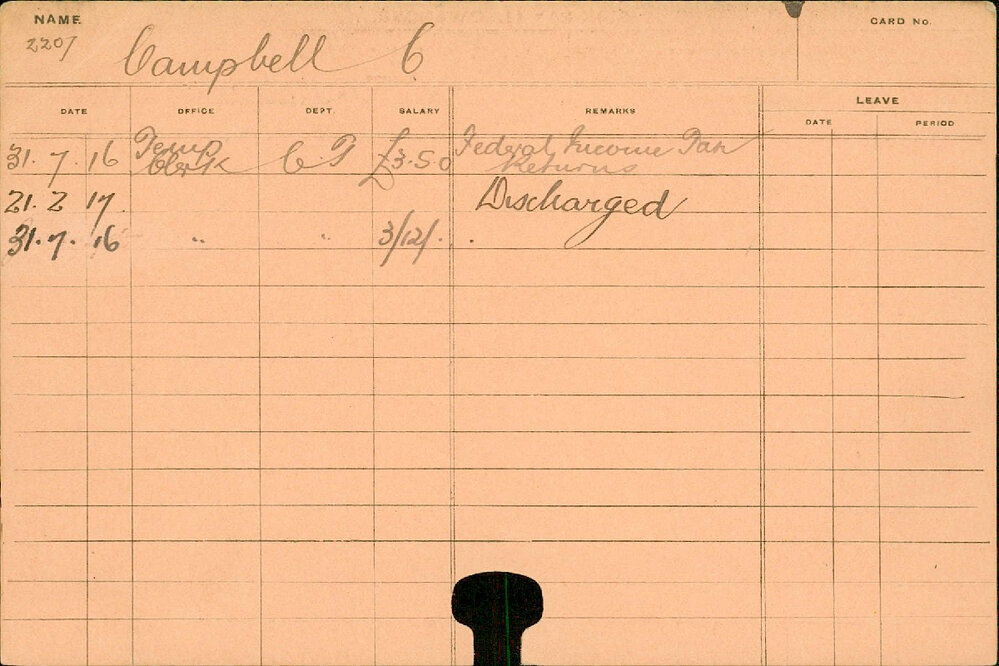 NAME
CARD No.
2207
Campbell C
DATE OFFICE DEPT. SALARY REMARKS LEAVE
DATE PERIOD
31. 7. 16 Temp Clerk C T £3.5.0 Federal Income Tax Returns
21. 2 17. Discharged
31. 7. 16 " " 3/12/-